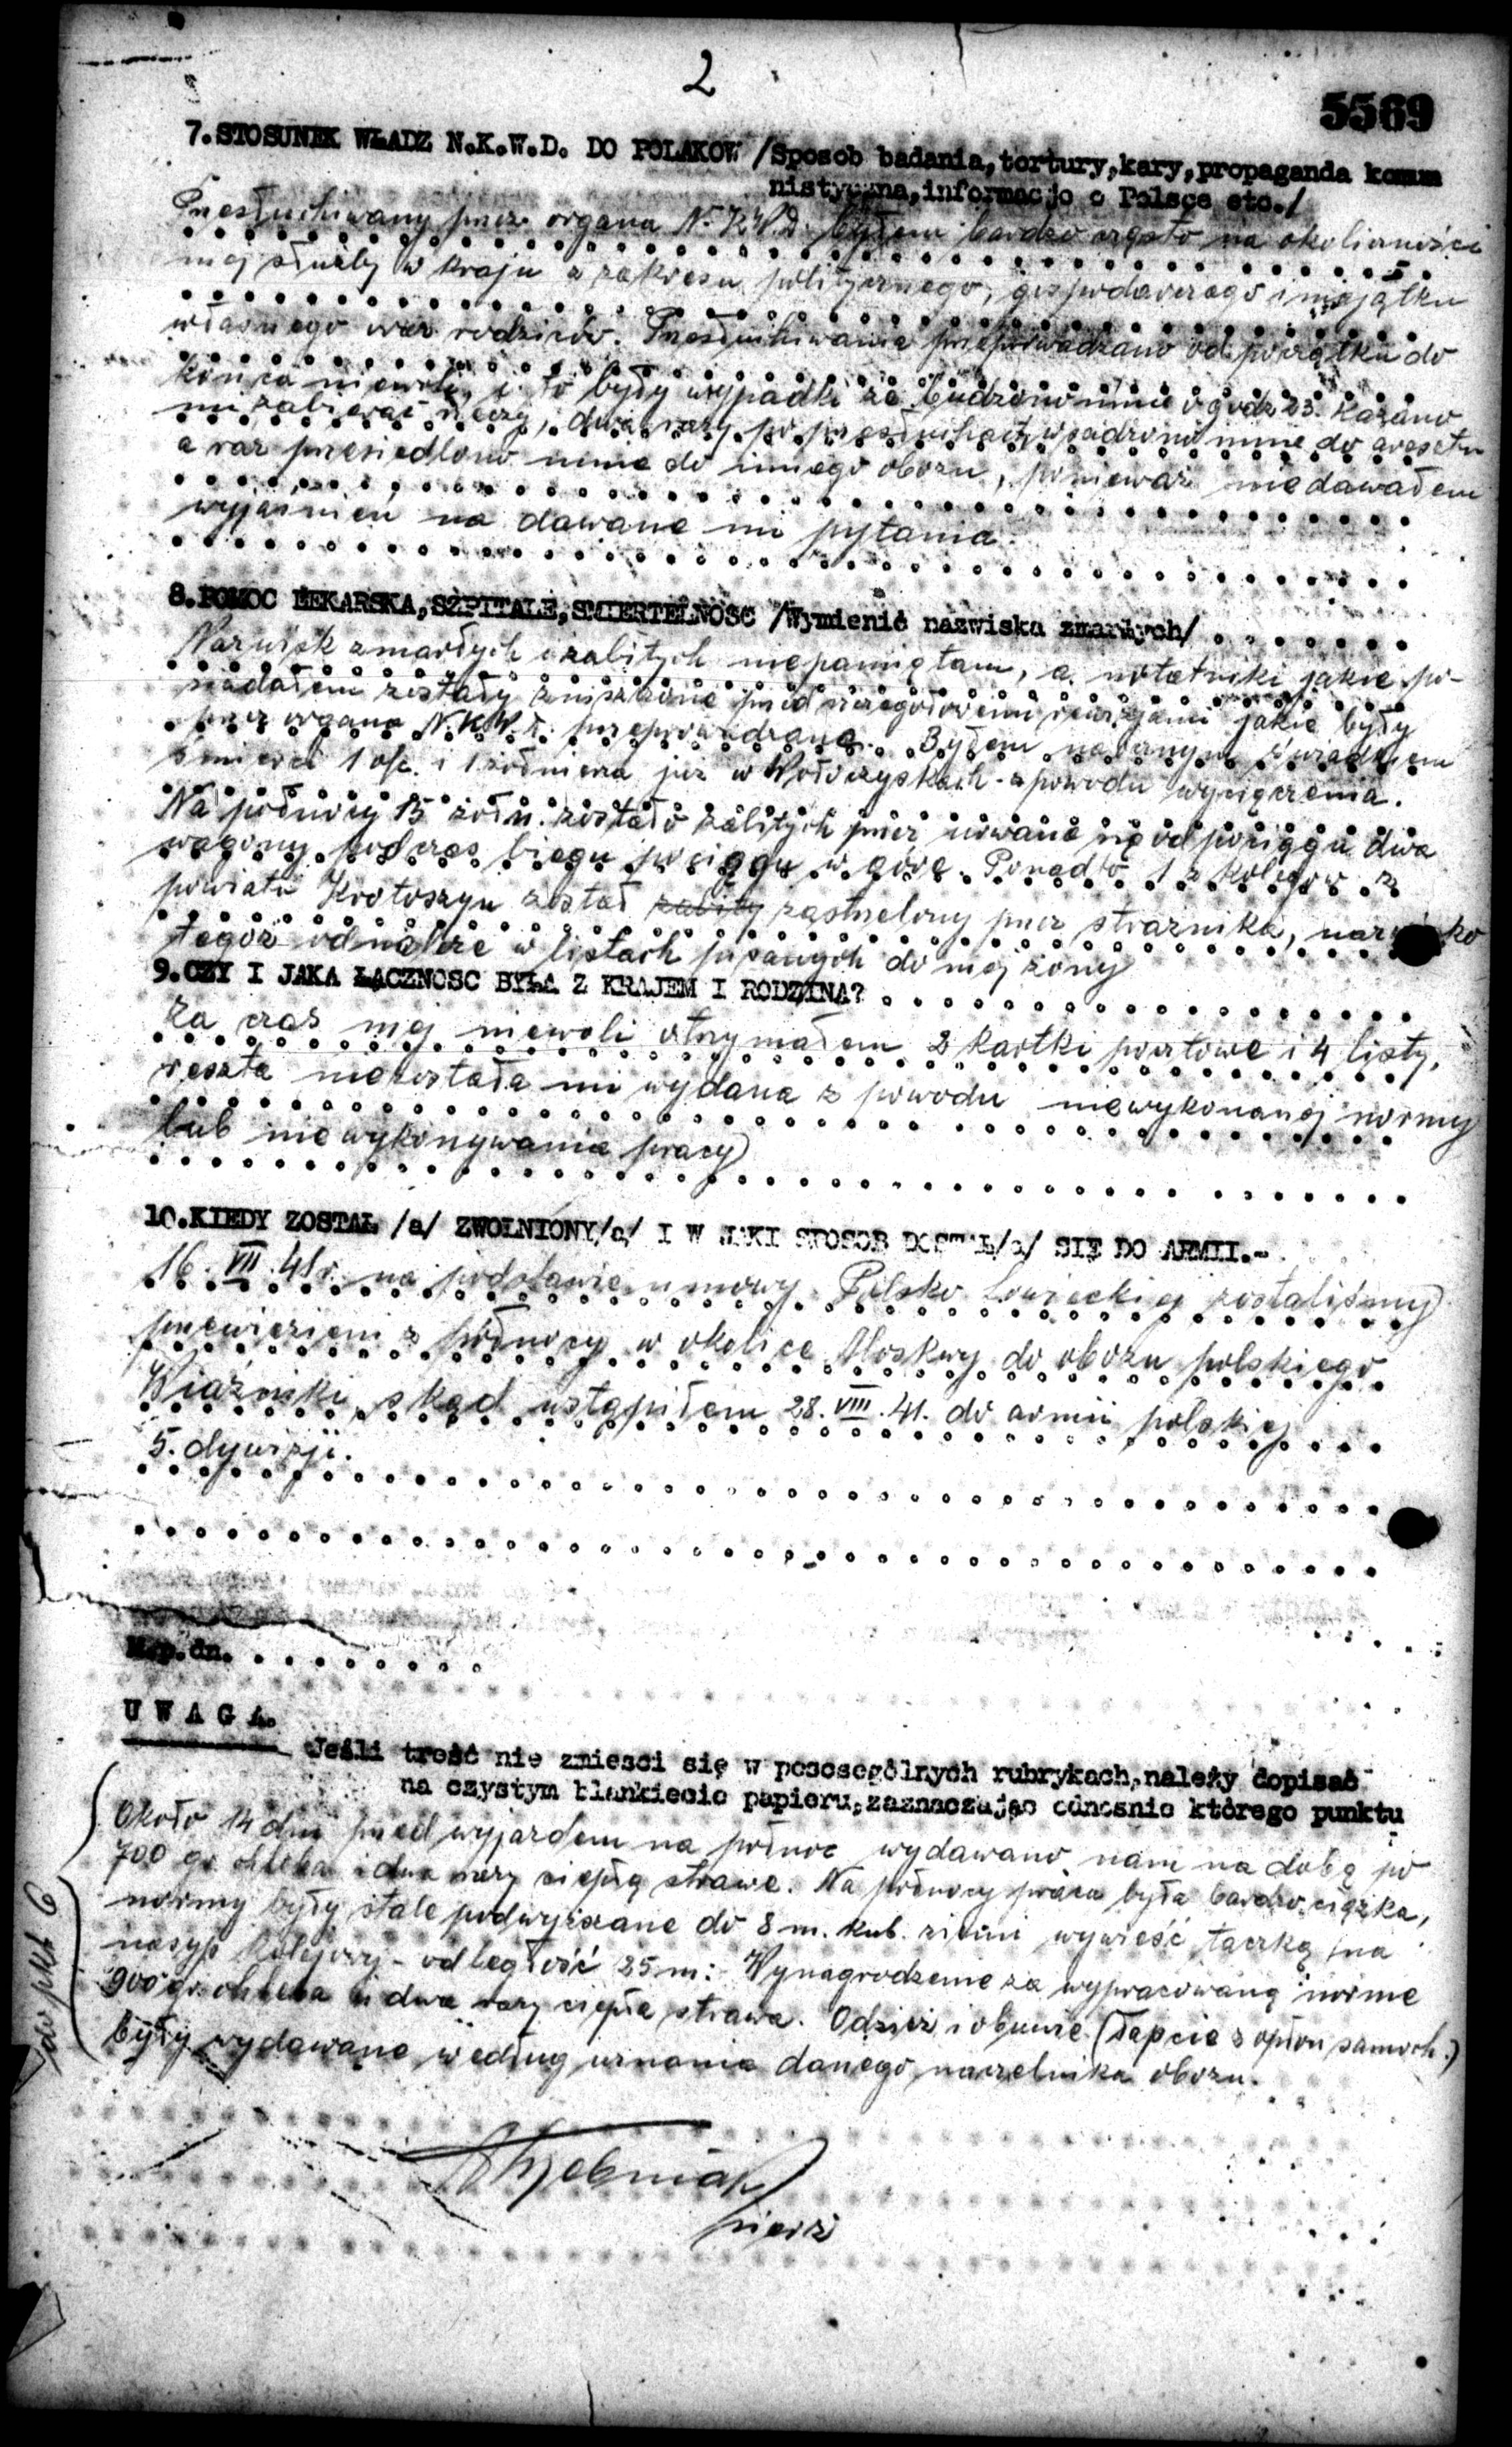 2
5569
7.STOSUNEK WŁADZ N.K.W.D. DO POLAKOW /Sposob badania,tortury,kary,propaganda komu
nistyczna,informacje o Polsce etc./
Przesłuchiwany przez organa N.K.W.D. byłem bardzo często na okoliczności
mej służby w kraju z zakresu politycznego, gospodarczego i majątku
własnego oraz rodziców. Przesłuchiwania przeprowadzano od początku do
końca niewoli, i to były wypadki że budzono mnie o godz 23. kazano
mi zabierać rzeczy, dwa razy po przesłuchach wsadzono mnie do aresztu
a raz przesiedlono mnie do innego obozu, ponieważ nie dawałem
wyjaśnień na dawane mi pytania.
8.POMOC LEKARSKA,SZPITALE,SMIERTELNOSC /Wymienić nazwiska zmarłych/
Nazwisk zmarłych i zabitych nie pamiętam, a notatniki jakie po-
siadałem zostały zniszczone przed szczegółowemi rewizjami jakie były
przez organa N.K.W.D. przeprowadzane. Byłem naocznym świadkiem
śmierci 1 of. i 1 żołnierza już w Wołoczyskach - z powodu wycięczenia.
Na północy 15 żołn. zostało zabitych przez urwanie się od pociągu dwa
wagony podczas biegu pociągu w górę. Ponadto 1 z kolegów z
powiatu Krotoszyn został zabity zastrzelony przez strażnika, nazwisko
tegoż odnalezie w listach pisanych do mej żony
9.CZY I JAKA ŁĄCZNOSC BYŁA Z KRAJEM I RODZINA?
Za czas mej niewoli otrzymałem 2 kartki pocztowe i 4 listy,
reszta nie została mi wydana z powodu niewykonanej normy
lub niewykonywania pracy
10.KIEDY ZOSTAŁ /a/ ZWOLNIONY/a/ I W JAKI SPOSOB DOSTAŁ/a/ SIĘ DO ARMII.-
16.VII.41r. na podstawie umowy Polsko Sowieckiej zostaliśmy
przewiezieni z północy w okolice Moskwy do obozu polskiego
Wiaźniki, skąd wstąpiłem 28.VIII.41. do armii polskiej
5. dywizji.
M.p.dn.
U W A G A.
Jeśli treść nie zmiesci się w poszczególnych rubrykach,należy dopisać
na czystym blankiecie papieru,zaznaczając odnosnie którego punktu
Około 14 dni przed wyjazdem na północ wydawano nam na dobę po
700 gr. chleba i dwa razy ciepłą strawe. Na północy praca była bardzo ciężka,
normy były stale podwyższane do 8 m. kub. ziemi wywieść taczką na
nasyp kolejowy - odległość 25 m: Wynagrodzenie za wypracowaną norme
900 gr. chleba i dwa razy ciepła strawa. Odzież i obuwie (łapcie z opłon samoch.)
były wydawane według uznania danego naczelnika obozu.
do pkt 6